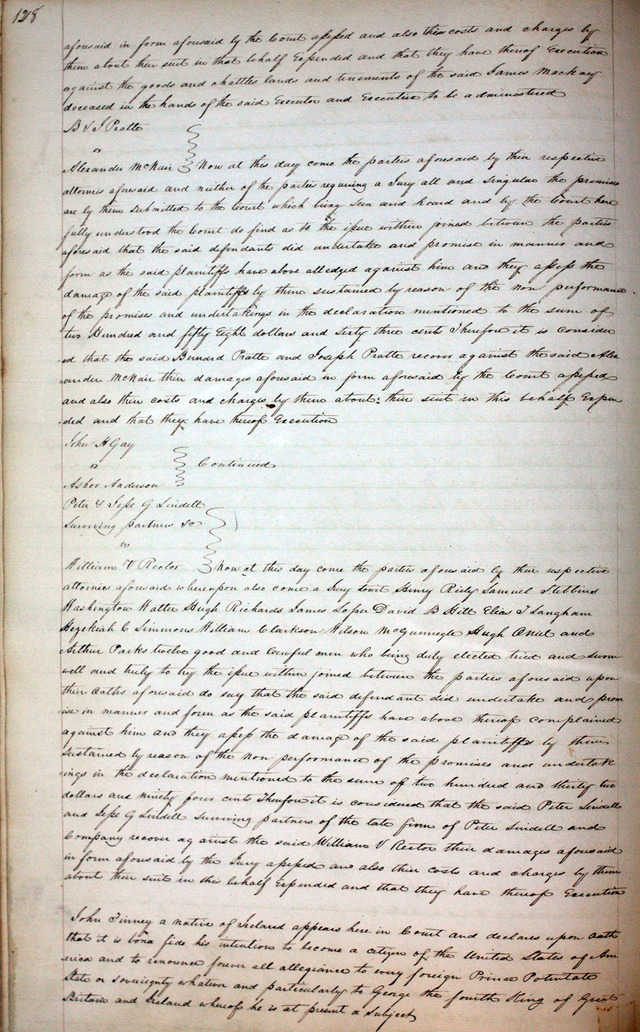 128
aforesaid in form aforesaid by the Court assessed and also their costs and charges by
them about their suit in that behalf Expended and that they have thereof Execution
against the goods and chattles lands and tenements of the said James Mackay
deceased in the hands of the said Executor and Executrix to be administered
B & J Pratte
vs
Alexander McNair Now at this day come the parties aforesaid by their respective
attornies aforesaid and neither of the parties requiring a Jury all and singular the premises
are by them submitted to the Court which being seen and heard and by the Court here
fully understood the Court do find as to the issue within joined between the parties
aforesaid that the said defendants did undertake and promise in manner and
form as the said plaintiffs have above alledged against him and they assess the
damage of the said plaintiffs by them sustained by reason of the non performance
of the promises and undertakings in the declaration mentioned to the sum of
two Hundred and fifty Eight dollars and sixty three cents Therefore it is consider
ed that the said Bernard Pratte and Joseph Pratte recover against the said Alex
ander McNair their damages aforesaid in form aforesaid by the Court assessed
and also their costs and charges by them about their suit in this behalf Expen
ded and that they have thereof Execution
John H Gay
vs
Continued
Asher Anderson
Peter & Jesse G Lindell
Surviving partners &c
vs
William V Rector Now at this day come the parties aforesaid by their respective
attornies aforesaid whereupon also come a Jury towit Henry Samuel Stebbins
Washington Walter Hugh Richards James Loper David B Hill Elias T Langham
Hezekiah C Simmons William Clarkson Wilson McGunnegle Hugh ONeil and
Arthur Parks twelve good and Lawful men who being duly elected tried and sworn
well and truly to try the issue within joined between the parties aforesaid upon
their Oaths aforesaid do say that the said defendant did undertake and prom
ise in manner and form as the said plaintiffs have above thereof complained
against him and they assess the damage of the said plaintiffs by them
sustained by reason of the non performance of the promises and undertak
ings in the declaration mentioned to the sum of two hundred and thirty two
dollars and ninety four cents Therefore it is considered that the said Peter Lindell
and Jesse G Lindell Surviving partners of the late firm of Peter Lindell and
Company recover against the said William V Rector their damages aforesaid
in form aforesaid by the Jury assessed and also their costs and charges by them
about their suit in this behalf Expended and that they have thereof Execution
John Finney a native of Ireland appears here in Court and declares upon oath
that it is bona fide his intention to become a citizen of the United States of Am
erica and to renounce forever all allegiance to every foreign Prince Potentate
State or sovereignty whatever and particularly to George the fourth King of Great
Britain and Ireland whereof he is at present a Subject